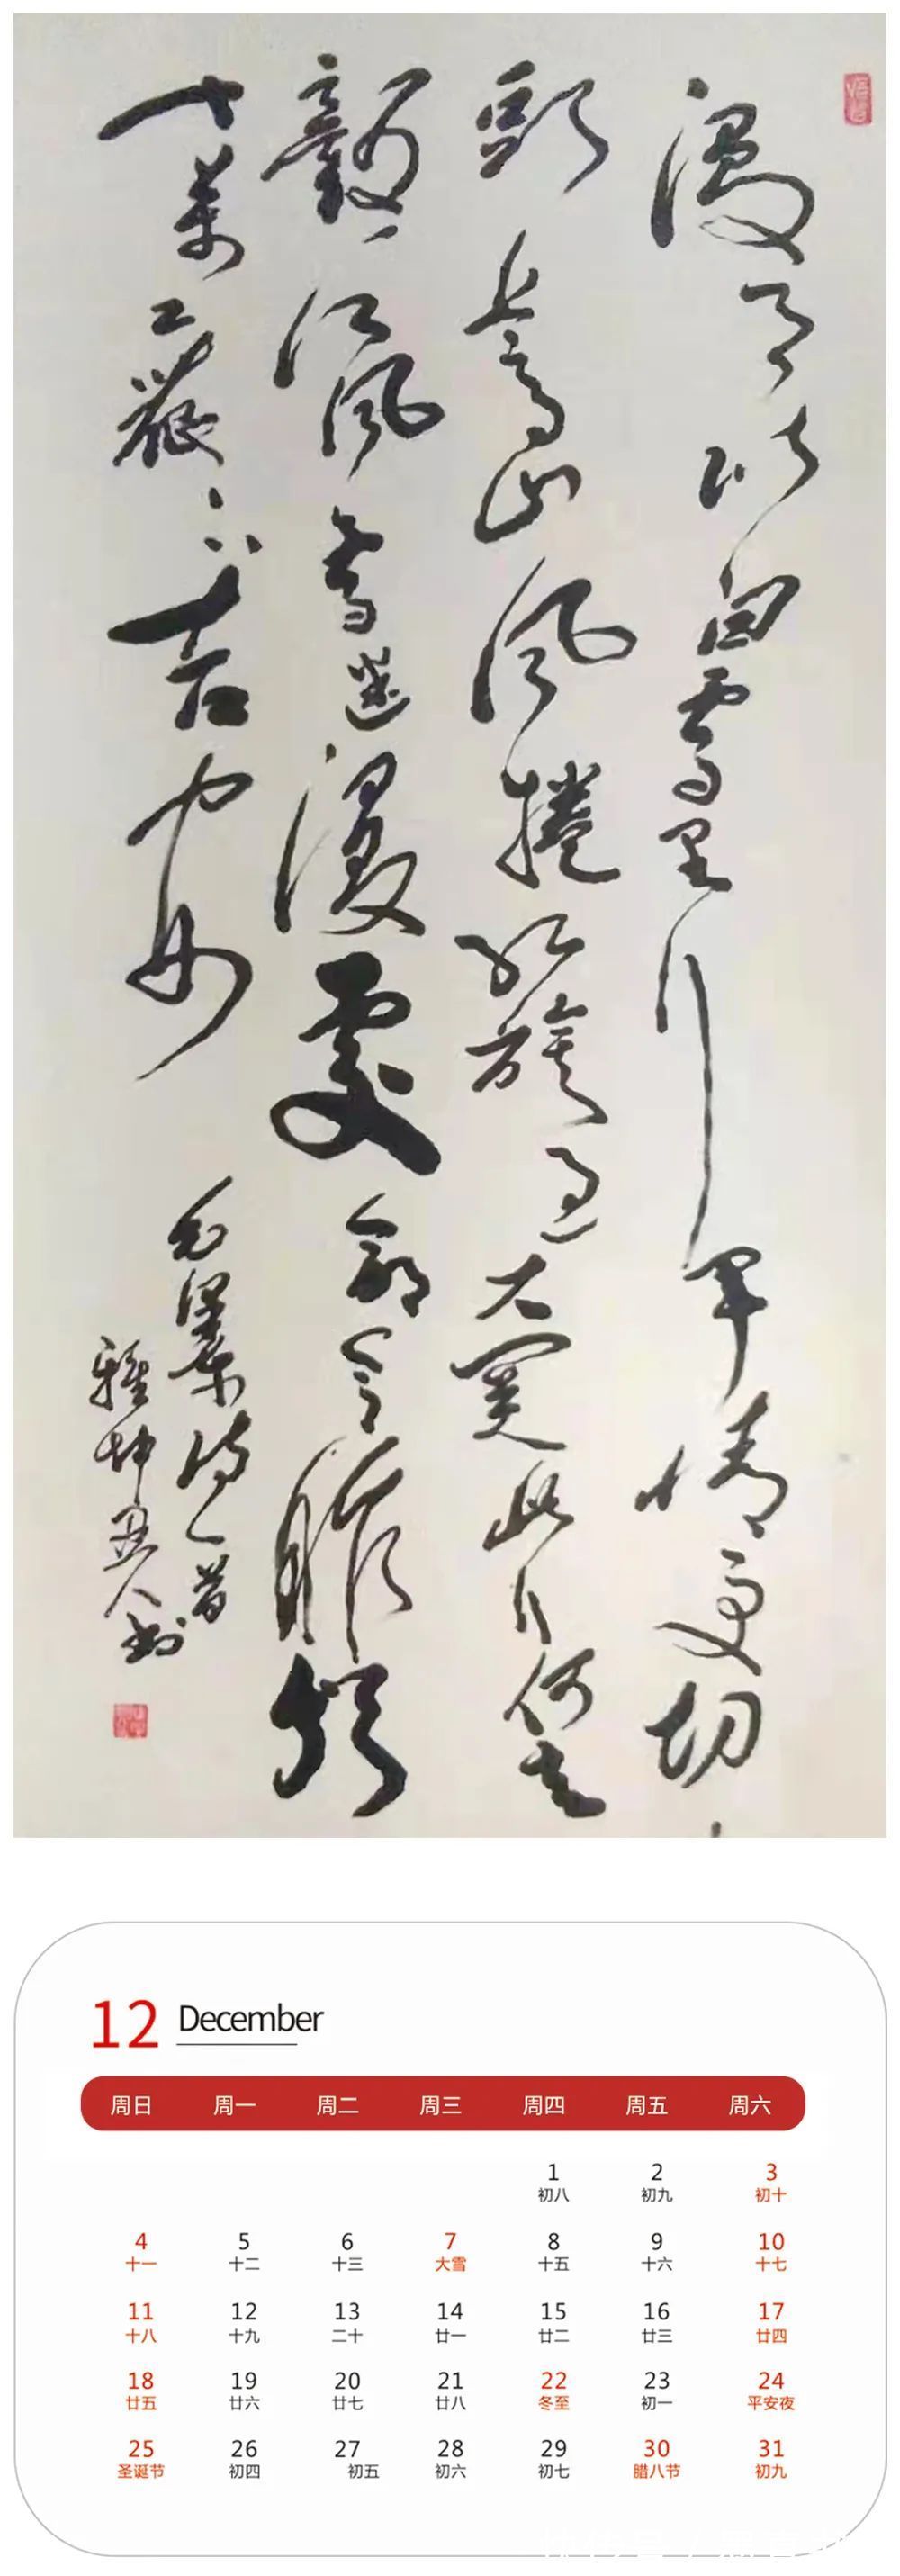 漫天皆白雪里行軍情更切
頭上高山風捲紅旗過大關此行何去
贛江風雪迷漫處命令昨頒
十萬工農下吉安
毛澤東詩一首
雅坤丑人书
12 December
周日 周一 周二 周三 周四 周五 周六
1 2 3
初八 初九 初十
4 5 6 7 8 9 10
十一 十二 十三 大雪 十五 十六 十七
11 12 13 14 15 16 17
十八 十九 二十 廿一 廿二 廿三 廿四
18 19 20 21 22 23 24
廿五 廿六 廿七 廿八 冬至 初一 平安夜
25 26 27 28 29 30 31
圣诞节 初四 初五 初六 初七 腊八节 初九